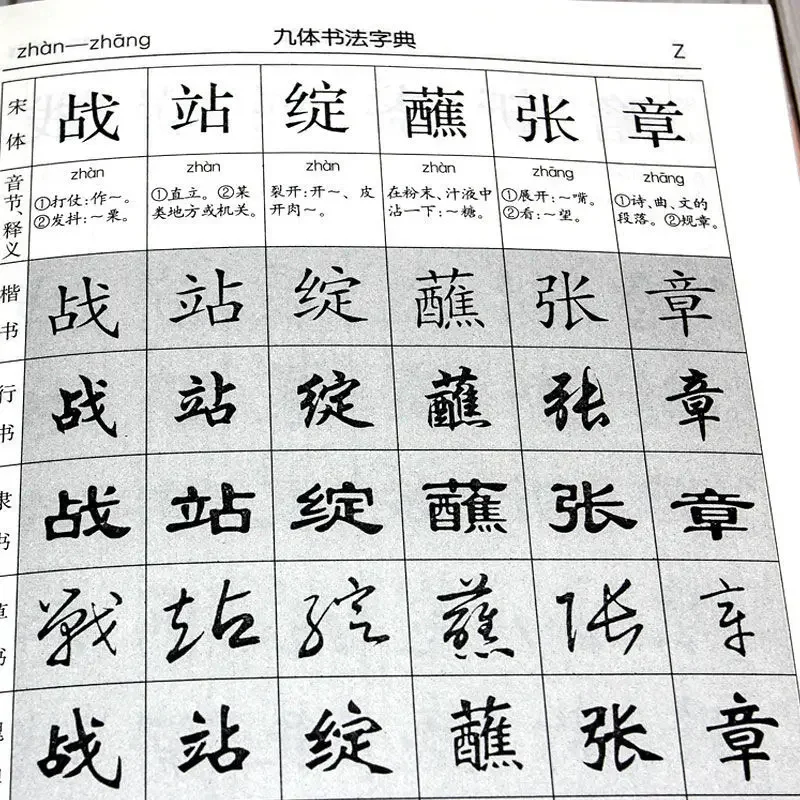 zhàn—zhāng 九体书法字典 Z
宋体 战 站 绽 蘸 张 章
音节、释义 zhàn zhàn zhàn zhàn zhāng zhāng
①打仗:作～。 ①直立。②某 裂开:开～、皮 在粉末、汁液中 ①展开:～嘴。 ①诗、曲、文的
②发抖:～栗。 类地方或机关。 开肉～。 沾一下:～糖。 ②看:～望。 段落。②规章。
楷书 战 站 绽 蘸 张 章
行书 战 站 绽 蘸 张 章
隶书 战 站 绽 蘸 张 章
草书 戰 站 绽 蘸 张 章
战 站 绽 蘸 张 章